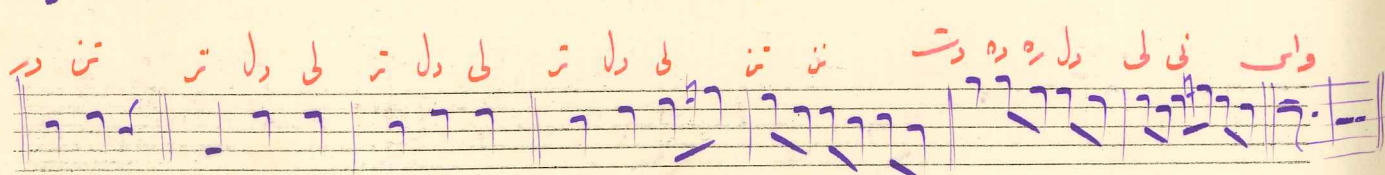 وای نی لی دل ره ده دت تن تن لی دل تر لی دل تر لی دل تر تن در